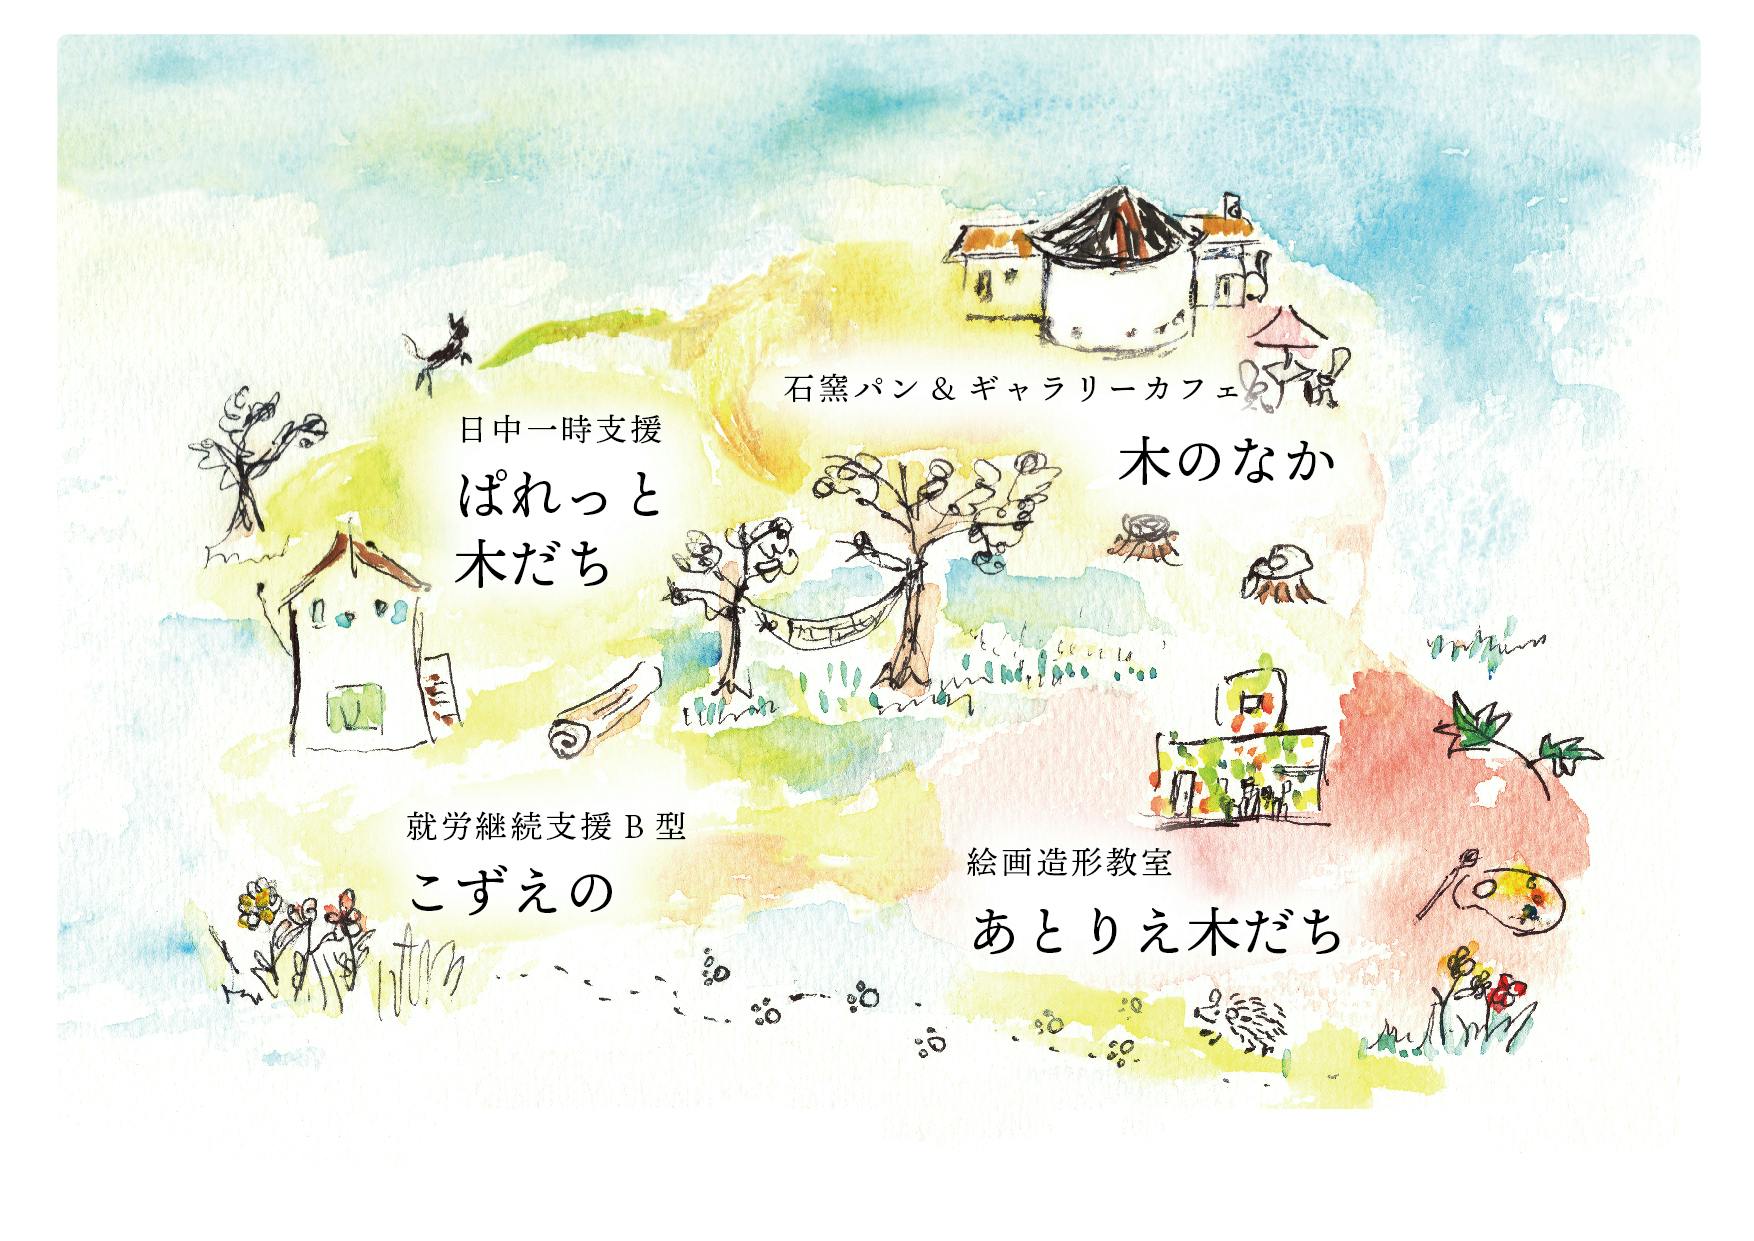 石窯パン & ギャラリーカフェ
木のなか
日中一時支援
ぱれっと
木だち
就労継続支援 B 型
こずえの
絵画造形教室
あとりえ木だち